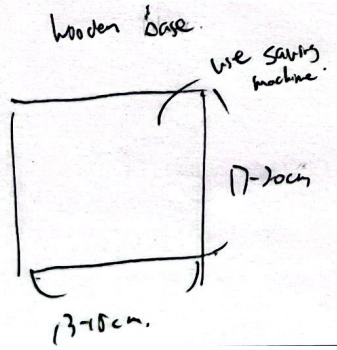 wooden base.
use saving
machine.
17-20cm
13-15cm.